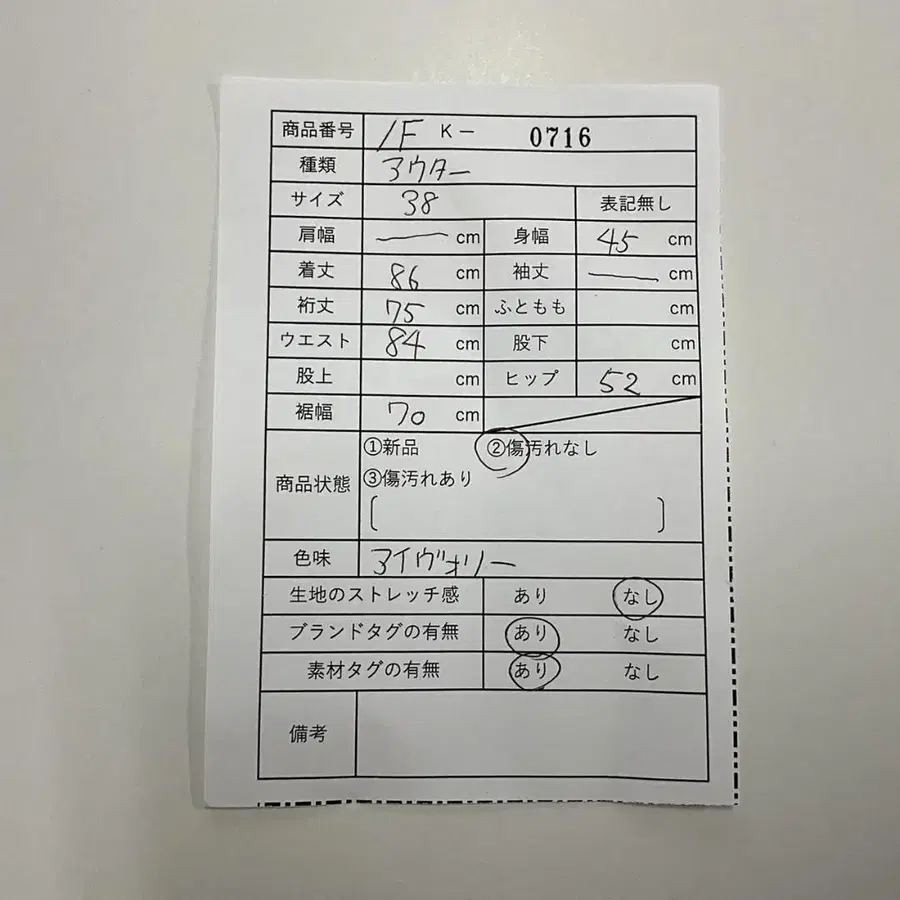 商品番号 1F K－ 0716
種類 アウター
サイズ 38 表記無し
肩幅 — cm 身幅 45 cm
着丈 86 cm 袖丈 — cm
裄丈 75 cm ふともも cm
ウエスト 84 cm 股下 cm
股上 cm ヒップ 52 cm
裾幅 70 cm
商品状態 ①新品 ②傷汚れなし
③傷汚れあり
[ ]
色味 アイヴォリー
生地のストレッチ感 あり なし
ブランドタグの有無 あり なし
素材タグの有無 あり なし
備考